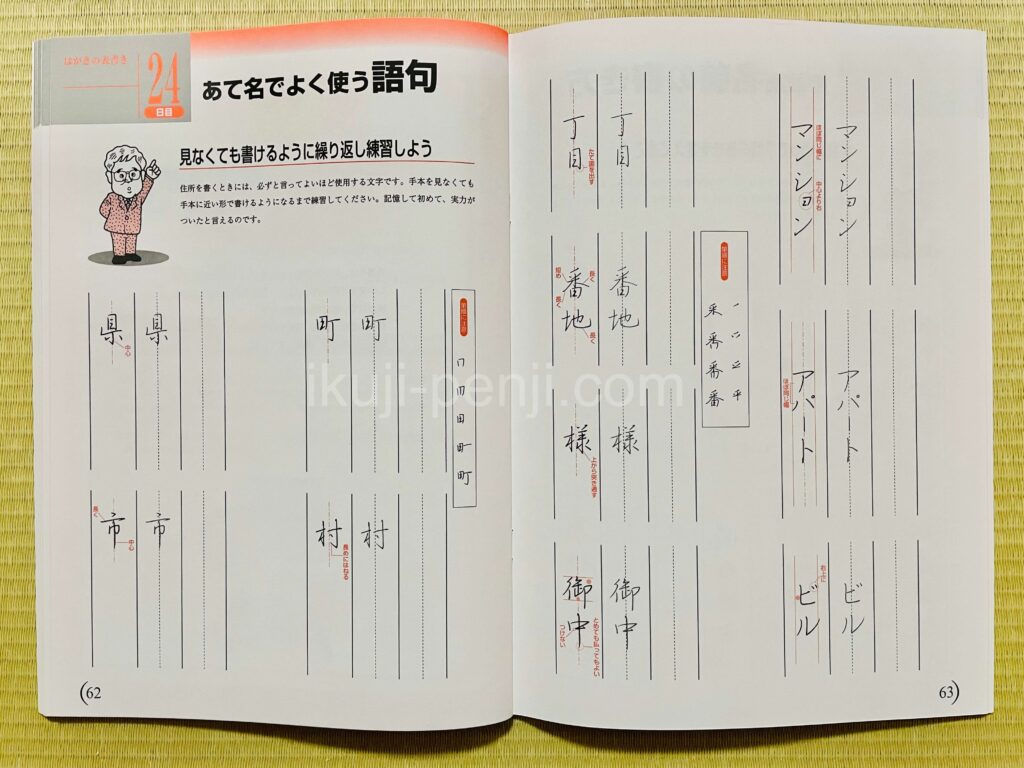 はがきの表書き
24
日目
あて名でよく使う語句
見なくても書けるように繰り返し練習しよう
住所を書くときには、必ずと言ってよいほど使用する文字です。手本を見なくても
手本に近い形で書けるようになるまで練習してください。記憶して初めて、実力が
ついたと言えるのです。
筆順に注意
町
町
県
県
中心
村
村
長めにはねる
市
市
長く
中心
62
マンション
マンション
ほぼ同じ幅に
中心よりも右
アパート
アパート
ほぼ同じ幅
ビル
ビル
右上に
筆順に注意
丁目
丁目
たて画を出す
番地
番地
長く
短め
長く
長く
様
様
上から突き通す
御中
御中
とめても払ってもよい
つけない
63
ikuji-penji.com